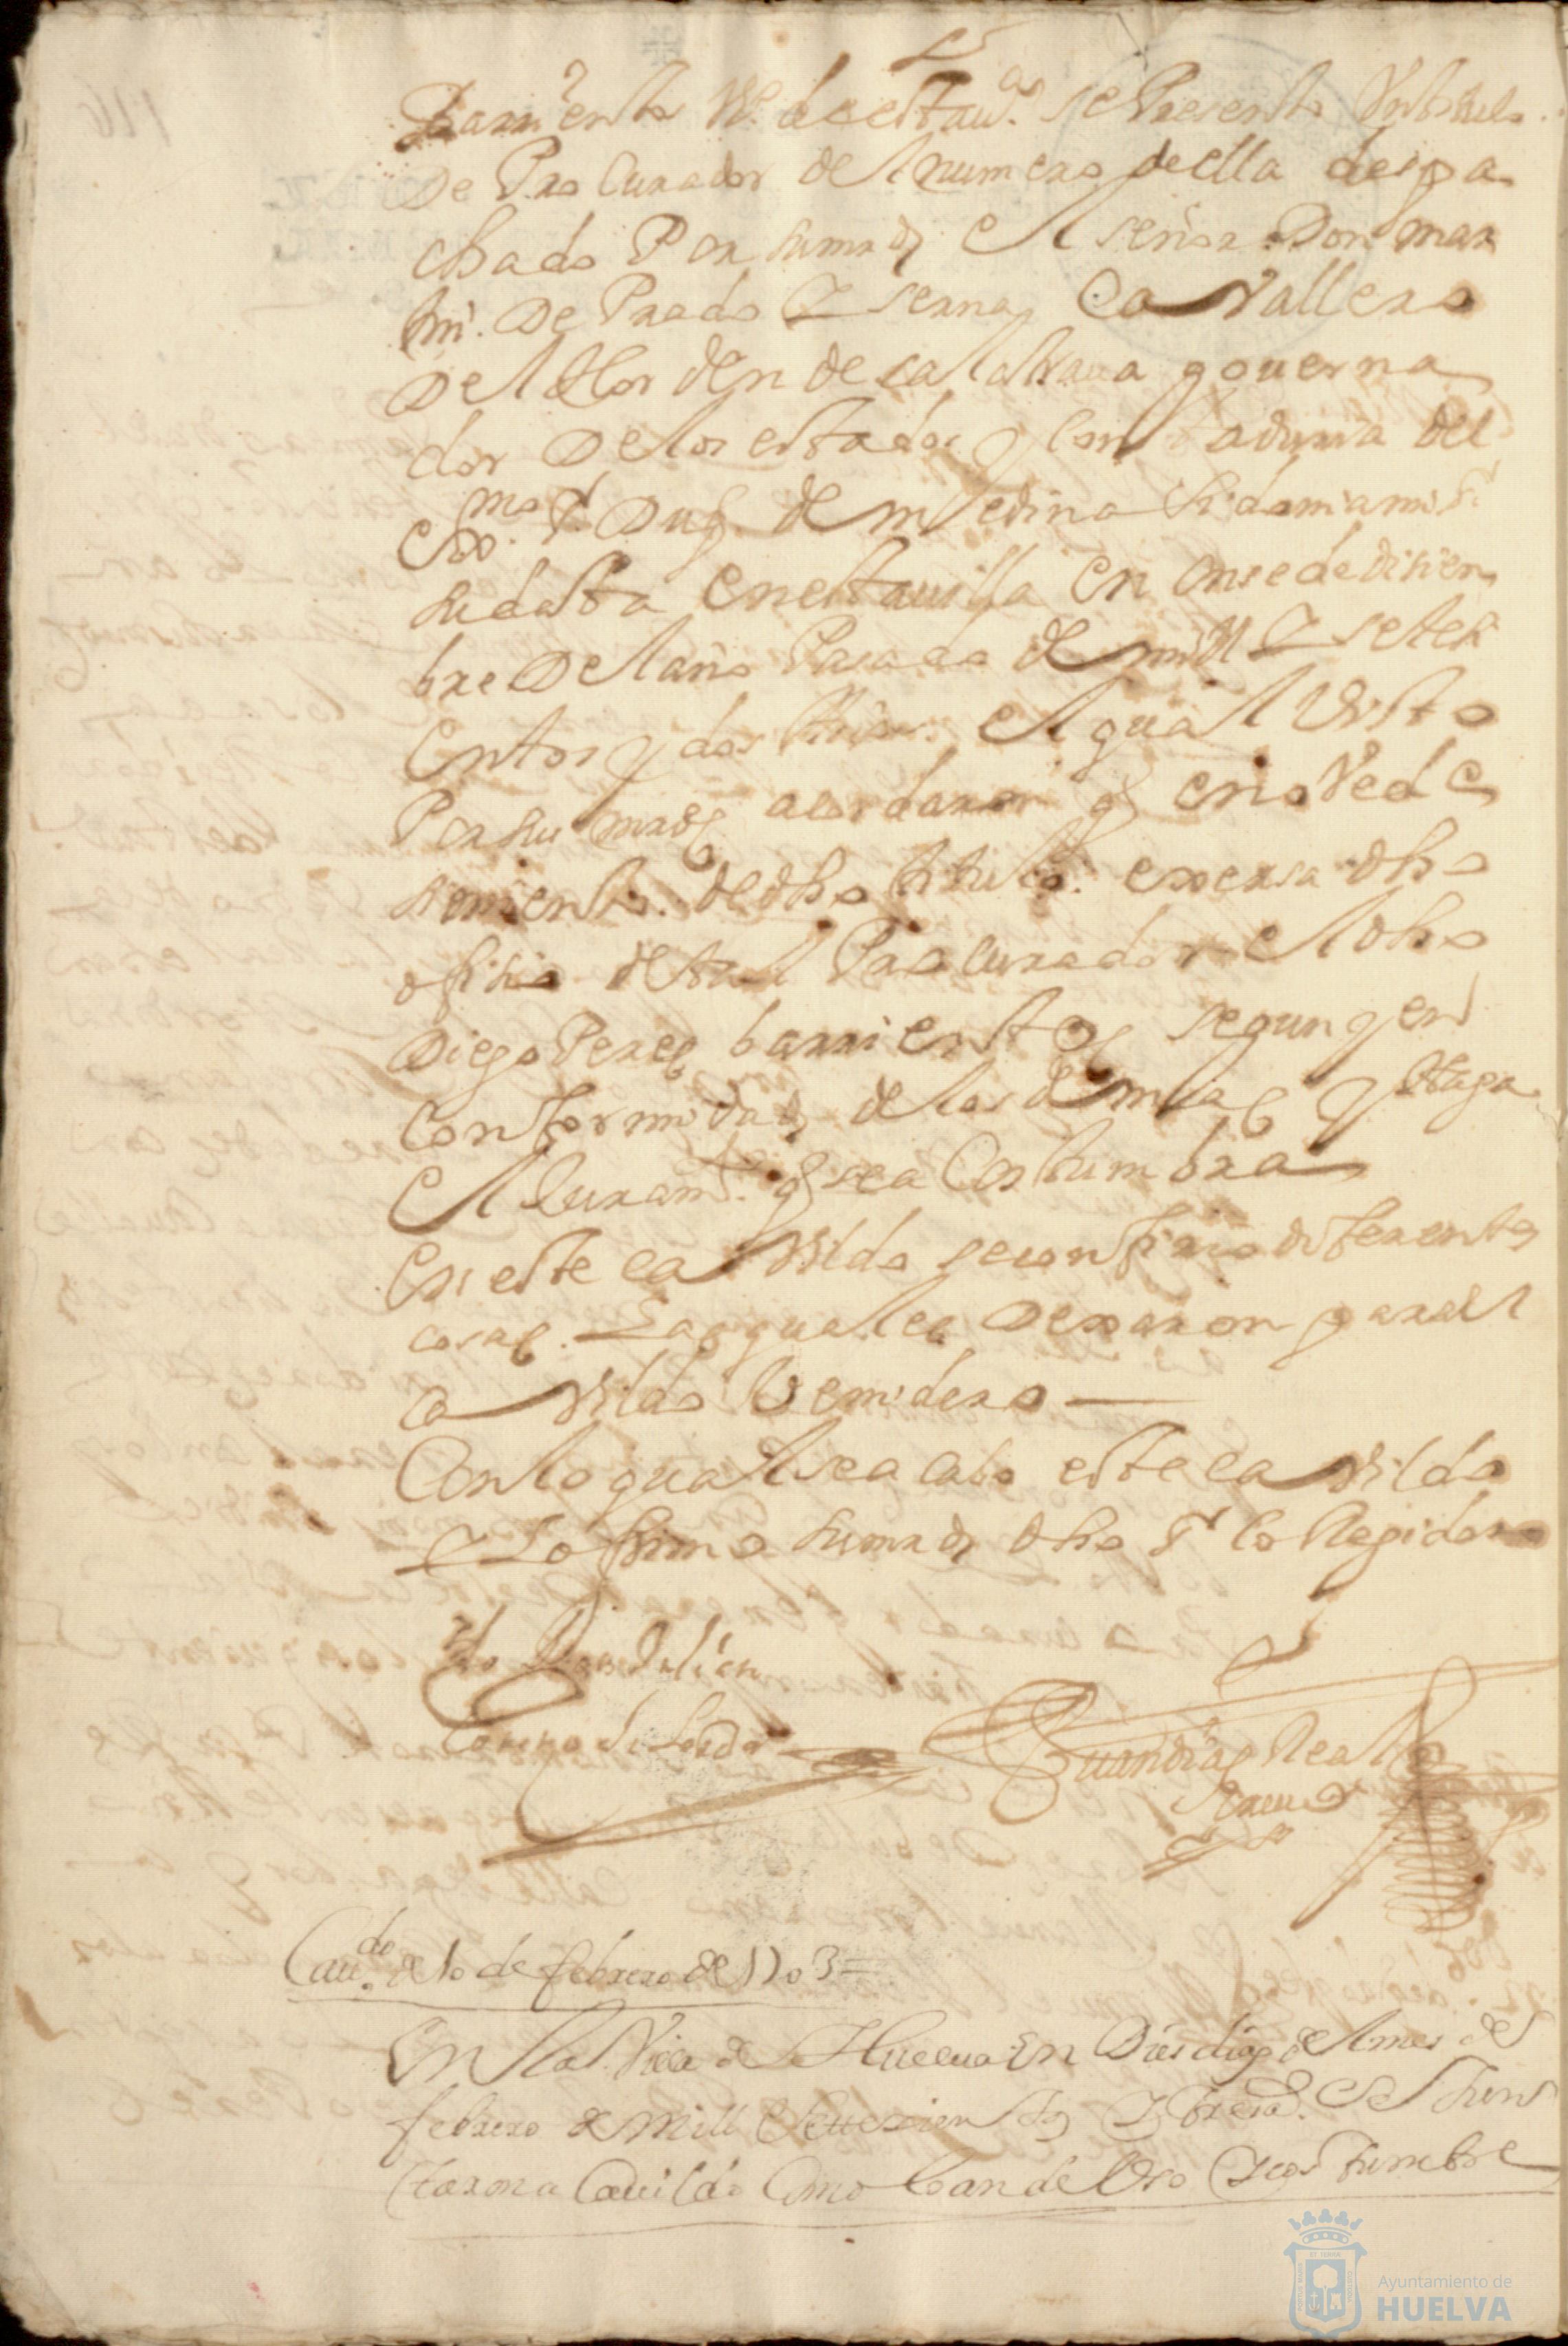 Barrientos Vº de esta uª. se Presento Un titulo
De Procurador del numero de ella despa
chado Por su mrd el señor Don mar
tin. De Prado y serna Cavallero
Del Horden de calatrava governa
dor De los estados y contaduria del
exmo. Sr. Duq. de medina Sidonia mi Sr.
su data en esta uilla en onse de disiem
bre Del año Pasado de mill y setesi
entos y dos el qual Visto
Por su mrd acordaron q en oVede
simiento. de dho titulo. exersa dho
ofisio de tal Procurador el dho
Diego Perez barrientos segun y en
Conformidad de los demas y Haga
el Juramto. q sea Costumbra
En este caVildo se confirio diferentes
cosas. Las quales Dexaron para el
caVildo Venidero
Con lo qual se acabo este caVildo
y Lo firmo su mrd dho Sr Corregidor
Juan Diaz Real
Caudo. de 10 de febrero de 1703=
En la Villa de Huelua En Dies dias del mes de
febrero de mill Settesientos y tres as. Se Jun
taron a Cauildo Como lo an de Uso y costumbre
Ayuntamiento de
HUELVA